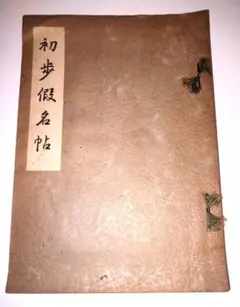 初歩假名帖